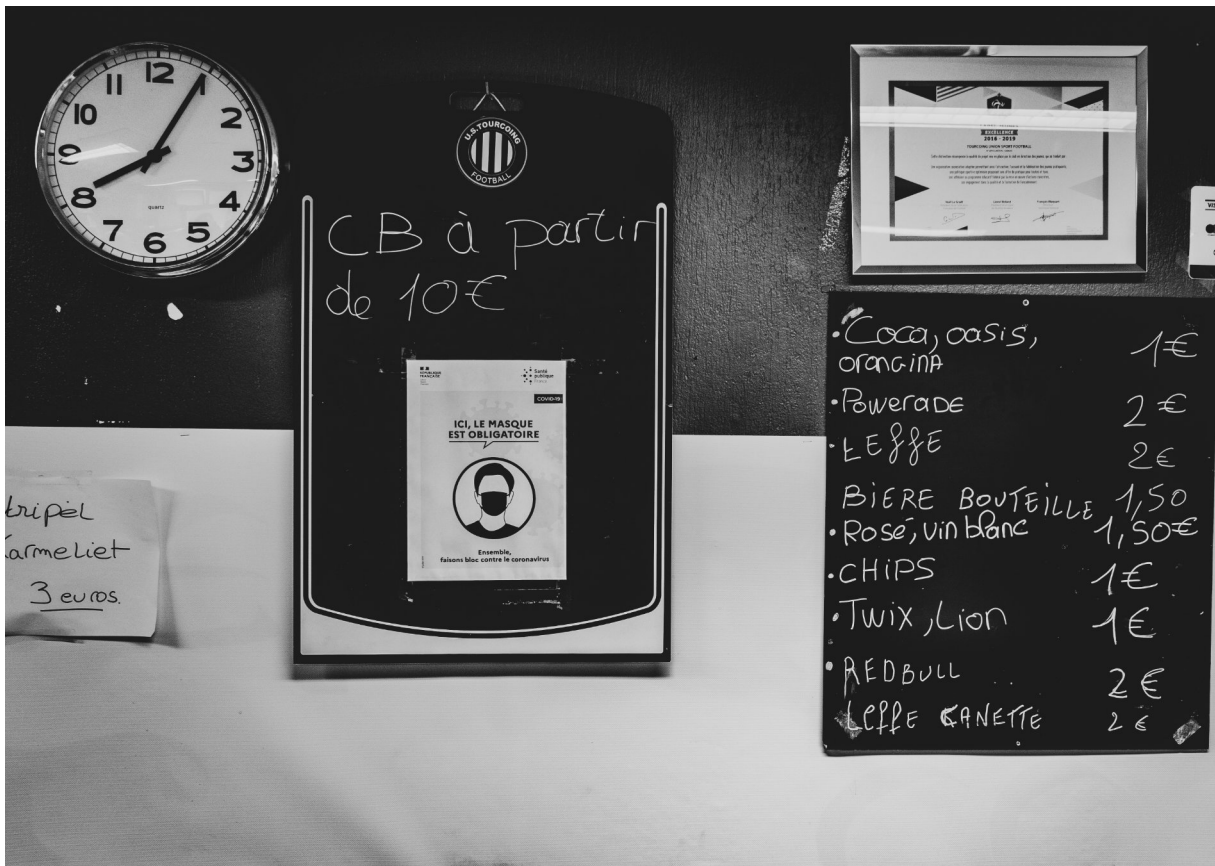 12
1
2
3
4
5
6
7
8
9
10
11
quartz
U.S.TOURCOING
FOOTBALL
CB à partir
de 10€
RÉPUBLIQUE
FRANÇAISE
Santé
publique
France
COVID-19
ICI, LE MASQUE
EST OBLIGATOIRE
Ensemble,
faisons bloc contre le coronavirus
tripel
Karmeliet
3 euros.
EXCELLENCE
2016 - 2019
TOURCOING UNION SPORT FOOTBALL
VIS
• Coca, oasis, 1€
oranginA
• Powerade 2 €
• LEffE 2€
BiERE BOUTEILLE 1,50
• Rosé, vin blanc 1,50€
• CHIPS 1€
• Twix, Lion 1€
• REDBULL 2€
Leffe CANETTE 2 €